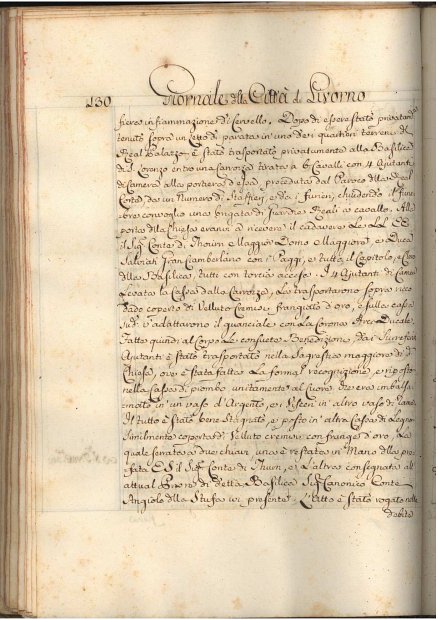 130 Giornale della Città di Livorno
fiera infiammazione di Cervello. Dopo di essere stato privatam.te
tenuto sopra un Letto di parata in uno dei quartieri terreni del
Real Palazzo è stato trasportato privatamente alla Basilica
di S. Lorenzo entro una Carrozza tirata a 6 Cavalli con 4 Ajutanti
di Camera alla portiera di essa, preceduta dal Paroco della Real
Corte da un Numero di Staffieri, e da i furieri, chiudendo il fune
bre convoglio una brigata di Guardie Reali a cavallo. Alla
porta della Chiesa erano a ricevere il cadavere Le LL. EE.
il Sig. Conte di Thurn Maggior Domo Maggiore, e Duca
Salviati Gran Ciamberlano con i Paggi, e tutto il Capitolo, e Clero
della Basilica, tutti con torcia accesa. I 4 Ajutanti di Camera
Levata la Cassa dalla Carrozza, La trasportarono sopra
dado coperto di Velluto Cremisi frangiato d'oro, e sulla cassa
Sud.a adattarono il guanciale con La Corona Arci-Ducale.
Fatte quindi al Corpo Le consuete Benedizioni, dai
Ajutanti è stato trasportato nella Sagrestia maggiore di d.a
Chiesa, ove è stata fatta La formal recognizione, e riposto
nella Cassa di piombo unitamente al Cuore che era imbalsa
mato in un vaso d'Argento, ei Visceri in altro vaso di
Il tutto è stato bene stagnato, e posto in altra Cassa di Legno
similmente coperta di Velluto cremisi con frange d'oro, La
quale serrata a due chiavi una è restata in Mano della pre
fata E.S. il Sig. Conte di Thurn, e L'altra consegnata all'
attual Priore di detta Basilica Sig. Canonico Conte
Angiolo della Stufa ivi presente. L'Atto è stato rogato nelle
debite